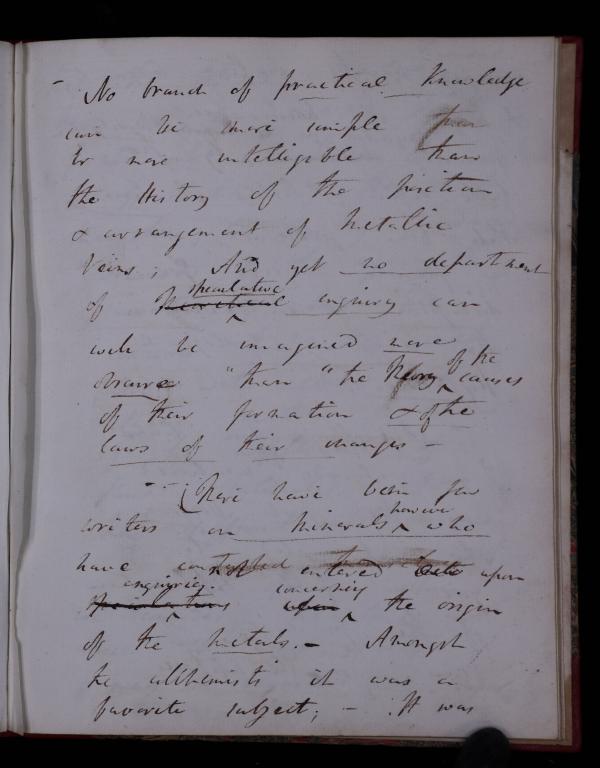 - No branch of practical Knowledge
can be more simple than
or more intelligible than
the History of the position
& arrangement of Metallic
Veins; And yet no department
speculative
of Theoretical enquiry can
well be imagined more
of the
obscure "than" the theory causes
of their formation & of the
laws of their changes -
- - (There have been few
however
writers on Minerals who
have not entered upon
enquiries concerning
Speculations upon the origin
of the metals. - Amongst
the alchemists it was a
favorite subject; - It was